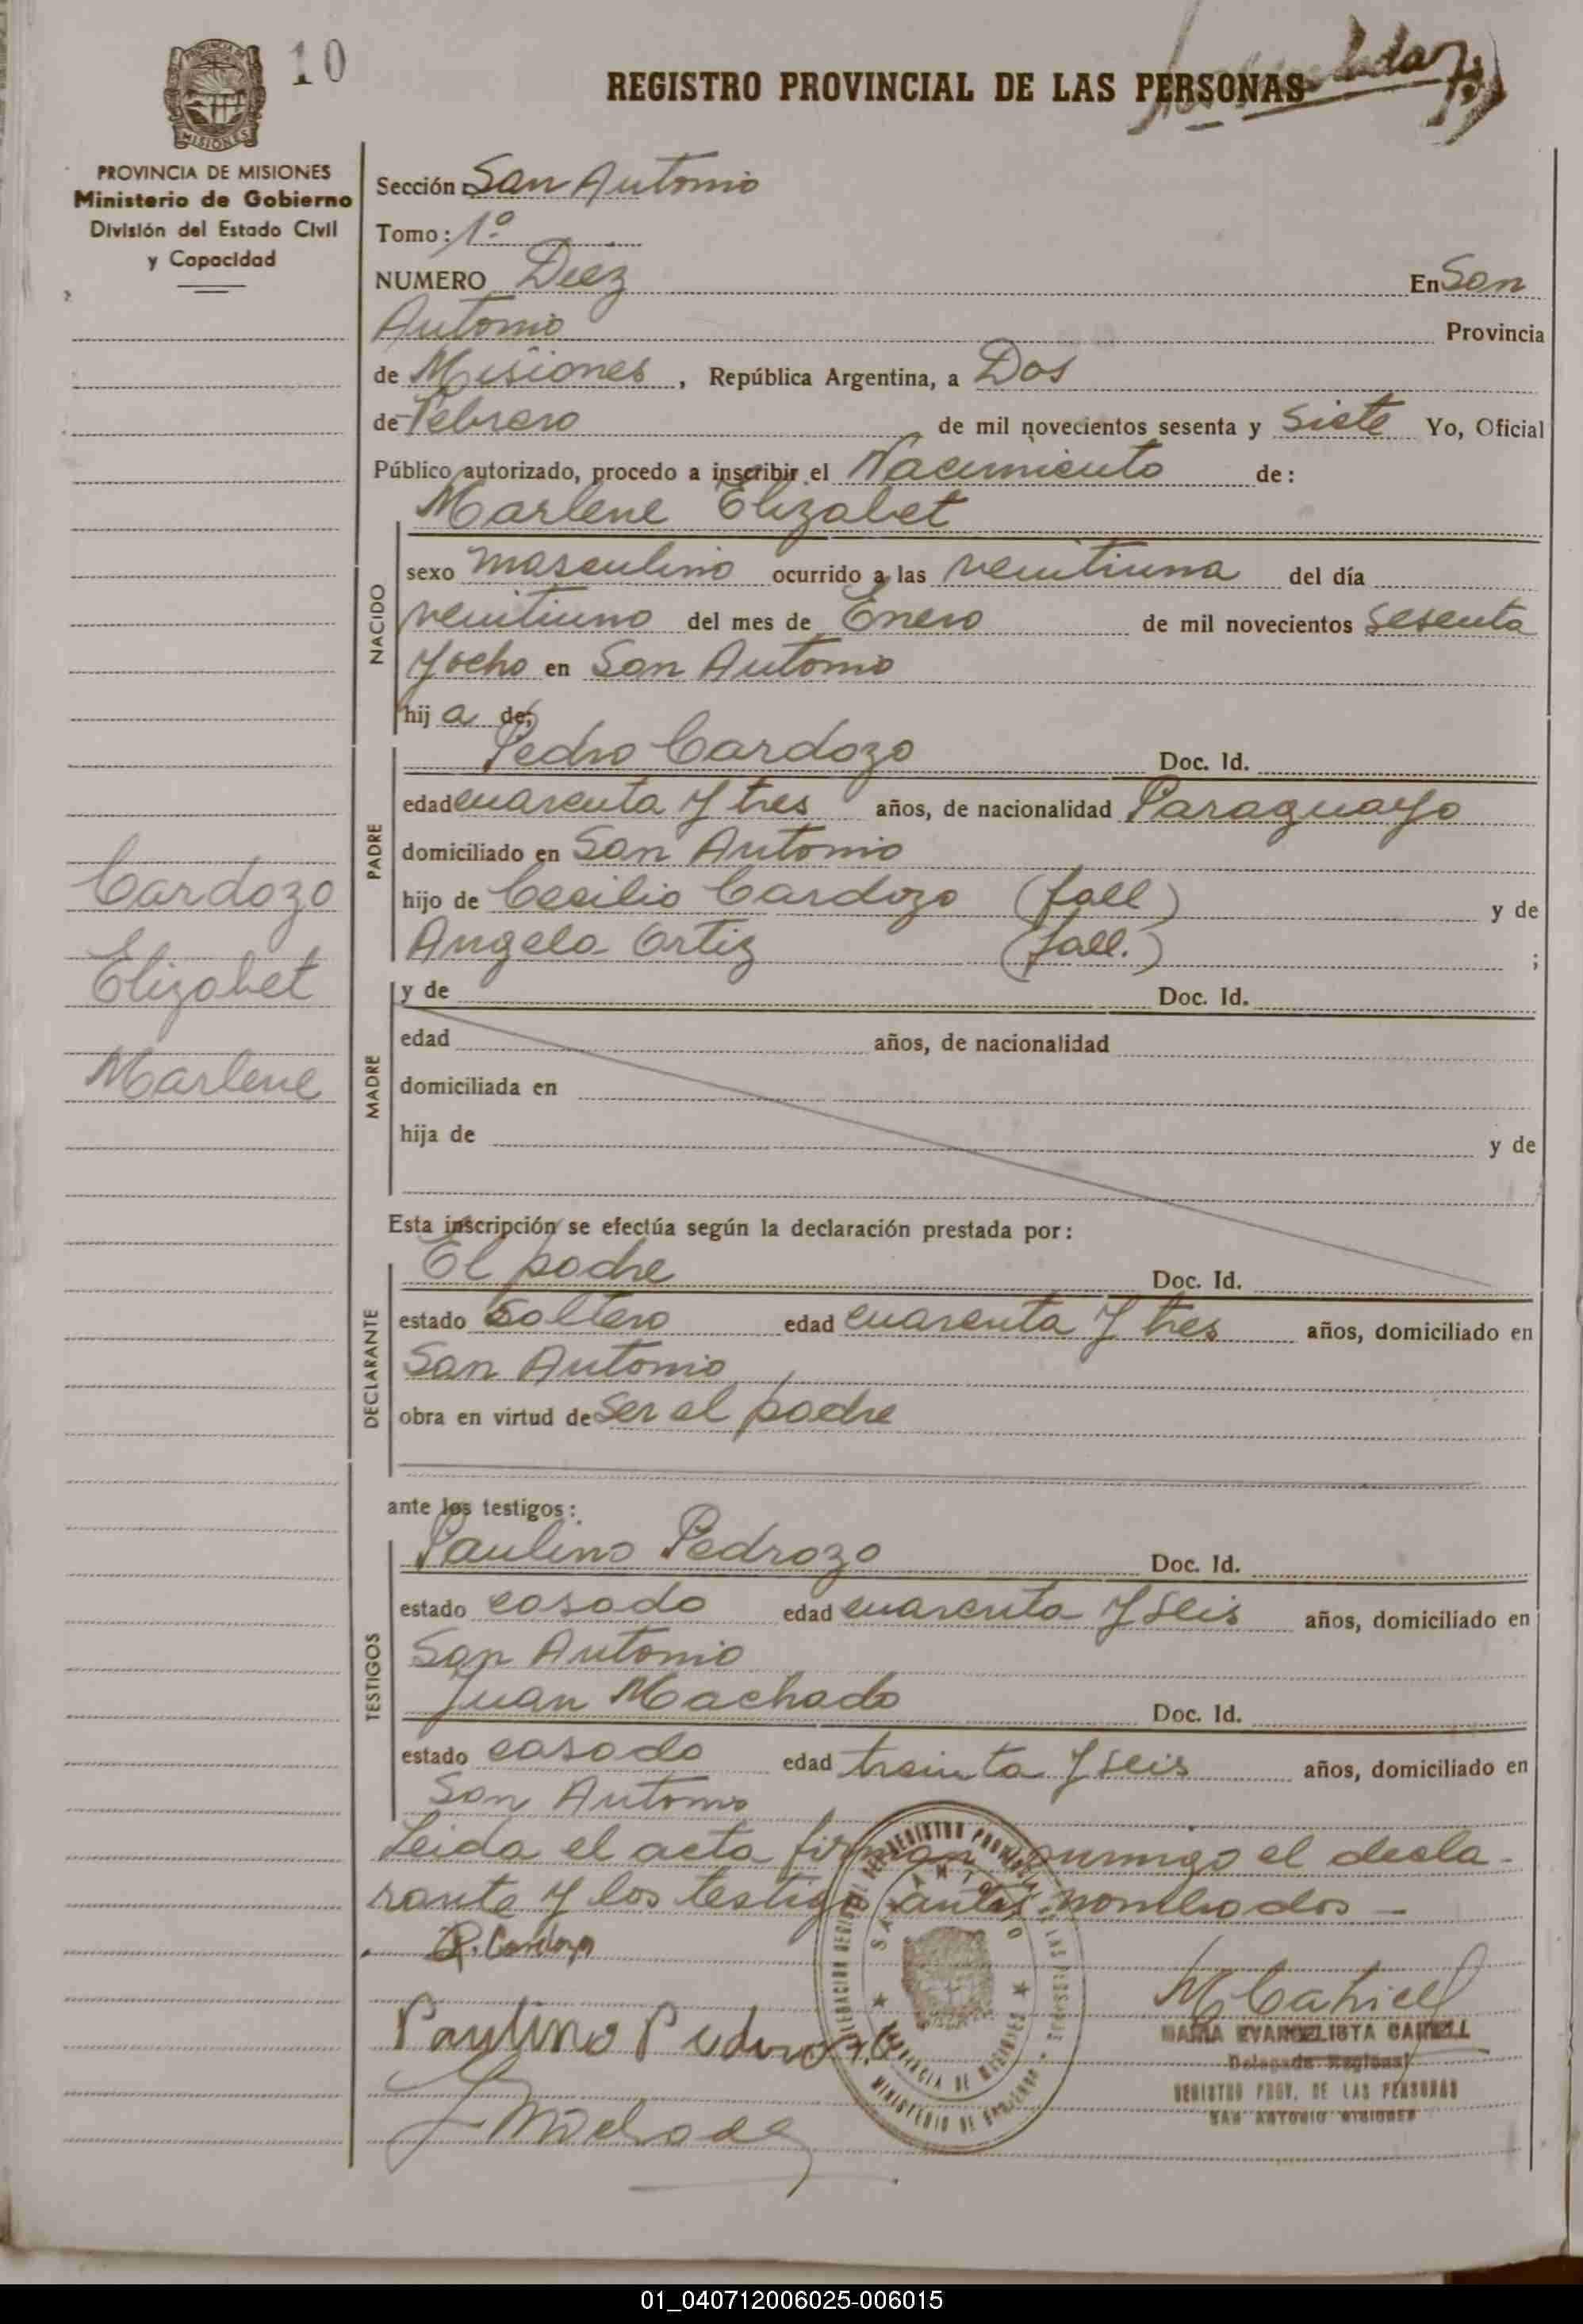 10
REGISTRO PROVINCIAL DE LAS PERSONAS
PROVINCIA DE MISIONES
Ministerio de Gobierno
División del Estado Civil
y Capacidad
MISIONES
Sección: San Antonio
Tomo: 1º
NUMERO Diez En San
Antonio Provincia
de Misiones, República Argentina, a Dos
de Febrero de mil novecientos sesenta y Siete Yo, Oficial
Público autorizado, procedo a inscribir el Nacimiento de:
Marlene Elizabet
NACIDO
sexo masculino ocurrido a las veintiuna del día
veintiuno del mes de Enero de mil novecientos sesenta
y ocho en San Antonio
hija de:
PADRE
Pedro Cardozo Doc. Id.
edad cuarenta y tres años, de nacionalidad Paraguayo
domiciliado en San Antonio
hijo de Cecilio Cardozo (fall) y de
Angela Ortiz (fall.) ;
Cardozo
Elizabet
Marlene
MADRE
y de Doc. Id.
edad años, de nacionalidad
domiciliada en
hija de y de
Esta inscripción se efectúa según la declaración prestada por:
DECLARANTE
El padre Doc. Id.
estado Soltero edad cuarenta y tres años, domiciliado en
San Antonio
obra en virtud de Ser el padre
ante los testigos:
TESTIGOS
Paulino Pedrozo Doc. Id.
estado casado edad cuarenta y seis años, domiciliado en
San Antonio
Juan Machado Doc. Id.
estado casado edad treinta y seis años, domiciliado en
San Antonio
Leida el acta firman conmigo el decla-
rante y los testigos antes nombrados -
P. Cardozo
Paulino Pedrozo
J Machado
SAN ANTONIO
PROVINCIA DE MISIONES
MINISTERIO DE GOBIERNO
MARIA EVANGELISTA
Delegada Regional
REGISTRO PROV. DE LAS PERSONAS
SAN ANTONIO MISIONES
01_040712006025-006015